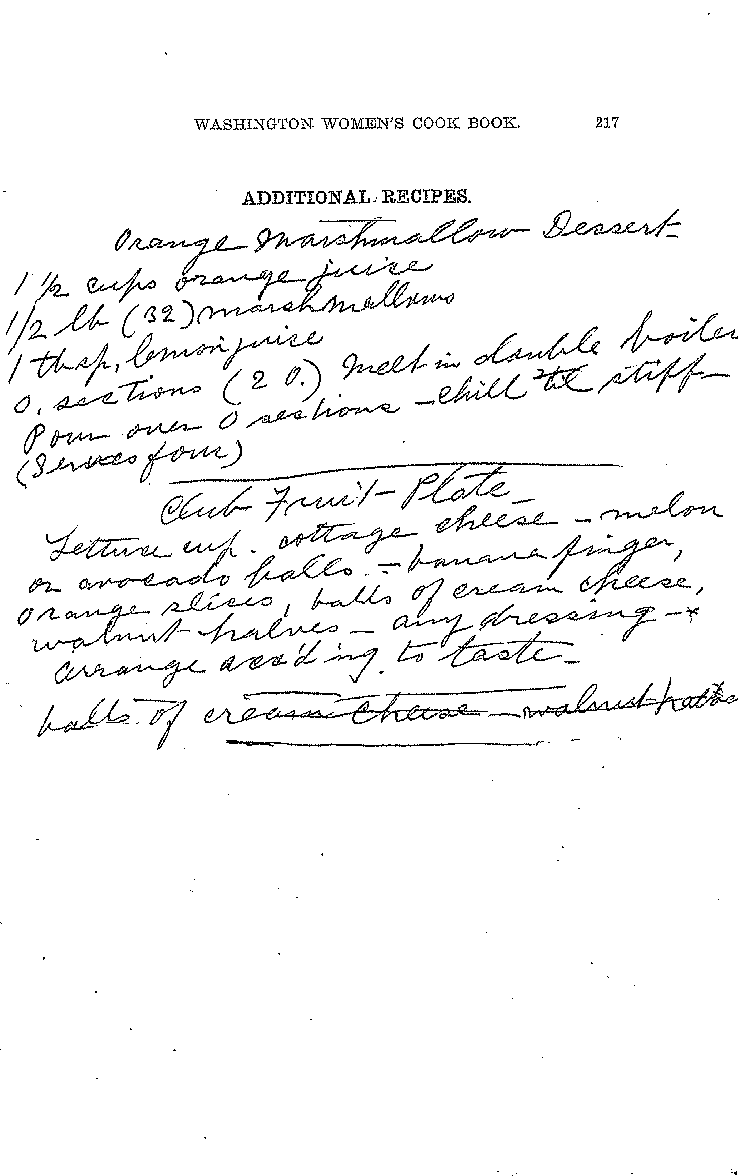 WASHINGTON WOMEN'S COOK BOOK. 217
ADDITIONAL RECIPES.
Orange Marshmallow Dessert
1 1/2 cups orange juice
1/2 lb (32) marshmallows
1 tbsp, lemon juice
O. sections (2 O.) Melt in double boiler
Pour over O sections - chill 'til stiff -
(Serves four)
Club Fruit Plate -
Lettuce cup. cottage cheese - melon
or avocado balls. - banana finger,
orange slices, balls of cream cheese,
walnut halves - any dressing -
arrange acc'd'ing to taste -
balls of cream cheese - walnut halves